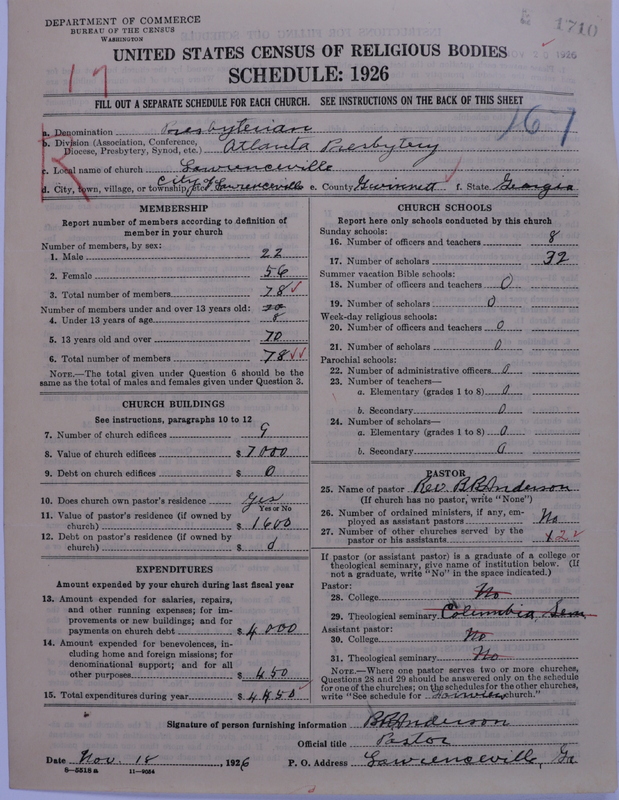 DEPARTMENT OF COMMERCE
BUREAU OF THE CENSUS
WASHINGTON
1710
1926
UNITED STATES CENSUS OF RELIGIOUS BODIES
SCHEDULE: 1926
17
FILL OUT A SEPARATE SCHEDULE FOR EACH CHURCH. SEE INSTRUCTIONS ON THE BACK OF THIS SHEET
167
R
a. Denomination Presbyterian
b. Division (Association, Conference, Diocese, Presbytery, Synod, etc.) Atlanta Presbytery
c. Local name of church Lawrenceville
d. City, town, village, or township City of Lawrenceville e. County Gwinnett f. State Georgia
MEMBERSHIP
Report number of members according to definition of
member in your church
Number of members, by sex:
1. Male 22
2. Female 56
3. Total number of members 78
Number of members under and over 13 years old:
4. Under 13 years of age 8
5. 13 years old and over 70
6. Total number of members 78
NOTE.—The total given under Question 6 should be
same as the total of males and females given under Question 3.
CHURCH BUILDINGS
See instructions, paragraphs 10 to 12
7. Number of church edifices
8. Value of church edifices $ 7000
9. Debt on church edifices $ 0
10. Does church own pastor's residence Yes
Yes or No
11. Value of pastor's residence (if owned by
church) $ 1600
12. Debt on pastor's residence (if owned by
church) $
EXPENDITURES
Amount expended by your church during last fiscal year
13. Amount expended for salaries, repairs,
and other running expenses; for im-
provements or new buildings; and for
payments on church debt $ 4000
14. Amount expended for benevolences, in-
cluding home and foreign missions; for
denominational support; and for all
other purposes $ 450
15. Total expenditures during year $ 4450
CHURCH SCHOOLS
Report here only schools conducted by this church
Sunday schools:
16. Number of officers and teachers 8
17. Number of scholars 32
Summer vacation Bible schools:
18. Number of officers and teachers 0
19. Number of scholars 0
Week-day religious schools:
20. Number of officers and teachers 0
21. Number of scholars 0
Parochial schools:
22. Number of administrative officers 0
23. Number of teachers—
a. Elementary (grades 1 to 8) 0
b. Secondary 0
24. Number of scholars—
a. Elementary (grades 1 to 8) 0
b. Secondary 0
PASTOR
25. Name of pastor Rev. B R Anderson
(If church has no pastor, write "None")
26. Number of ordained ministers, if any, em-
ployed as assistant pastors No
27. Number of other churches served by the
pastor or his assistants 2
If pastor (or assistant pastor) is a graduate of a college or
theological seminary, give name of institution below. (If
not a graduate, write "No" in the space indicated.)
Pastor:
28. College No
29. Theological seminary Columbia Sem
Assistant pastor:
30. College No
31. Theological seminary No
NOTE.—Where one pastor serves two or more churches,
Questions 28 and 29 should be answered only on the schedule
for one of the churches; on the schedules for the other churches,
write "See schedule for church."
Signature of person furnishing information B R Anderson
Official title Pastor
Date Nov. 18, 1926 P. O. Address Lawrenceville, Ga
8—5518 a 11—9064